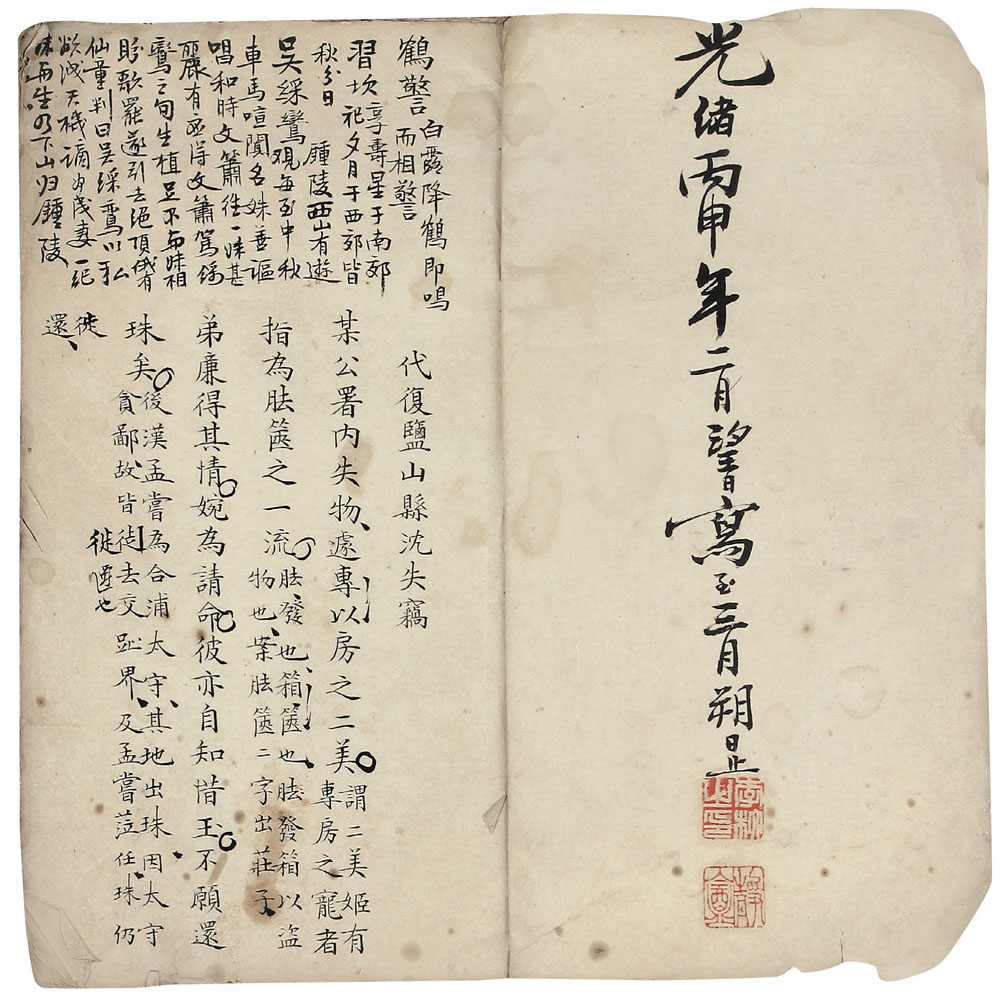 光緒丙申年二月望日寫至三月朔日止
鶴警 白露降鶴即鳴
而相警
習坎享壽星于南郊
秋分日 祀夕月于西郊皆
鍾陵西山有遊
吳綵鸞 觀每至中秋
車馬喧闐名姝善謳
唱和時文簫往一姝甚
麗有 得文簫駕綵
鸞之句生植足不去姝相
盻歌罷遂引去絕頂俄有
仙童判曰吳綵鸞以私
欲洩天機謫為民妻一紀
姝與生乃下山归鍾陵
代復鹽山縣沈失竊
某公署内失物、處專以房之二美 謂二美姬有
專房之寵者
指為胠篋之一流 胠發也、箱篋也、胠發箱以盜
物也、案胠篋二字出莊子、
弟廉得其情婉為請命彼亦自知惜玉不願還
珠矣 後漢孟嘗為合浦太守、其地出珠、因太守
貪鄙故皆徒去交趾界、及孟嘗蒞任、珠仍
徙遷也
徙
還、